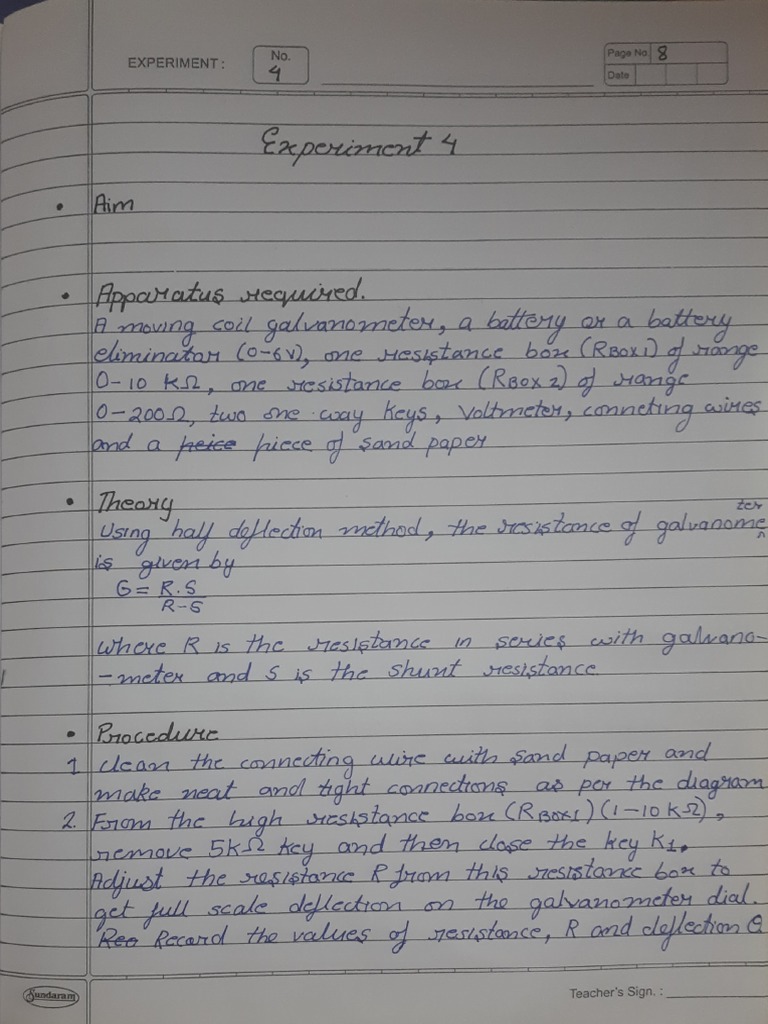 EXPERIMENT : No. 4 Page No. 8
Date
Experiment 4
• Aim
• Apparatus required.
A moving coil galvanometer, a battery or a battery
eliminator (0-6V), one resistance box (RBOX1) of range
0-10 KΩ, one resistance box (RBOX 2) of range
0-200Ω, two one way keys, Voltmeter, conneting wires
and a peice piece of sand paper
• Theory
Using half deflection method, the resistance of galvanometer
is given by
G = R.S
R-S
where R is the resistance in series with galvano-
-meter and S is the shunt resistance.
• Procedure
1 Clean the connecting wire with sand paper and
make neat and tight connections as per the diagram
2. From the high resistance box (RBOX1) (1-10 KΩ),
remove 5KΩ key and then close the key K1.
Adjust the resistance R from this resistance box to
get full scale deflection on the galvanometer dial.
Record the values of resistance, R and deflection θ
Sundaram Teacher's Sign. :